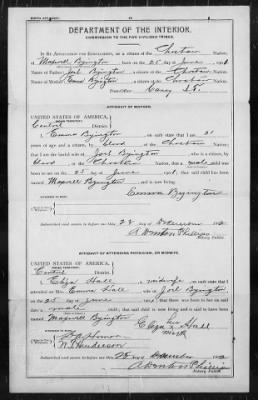 DEPARTMENT OF THE INTERIOR.
COMMISSION TO THE FIVE CIVILIZED TRIBES.
IN RE APPLICATION FOR ENROLLMENT, as a citizen of the Choctaw Nation,
of Maxwell Byington, born on the 25 day of June, 190
Name of Father: Joel Byington a citizen of the Choctaw Nation.
Name of Mother: Emma Byington a citizen of the Choctaw Nation.
Post-Office Caney I.T.
AFFIDAVIT OF MOTHER.
UNITED STATES OF AMERICA,
INDIAN TERRITORY,
Central District.
I, Emma Byington, on oath state that I am
years of age and a citizen, by blood, of the Choctaw Nation;
that I am the lawful wife of Joel Byington, who is a citizen, by
blood, of the Choctaw Nation; that a male child was
born to me on the 25 day of June, 190 ; that said child has been
named Maxwell Byington, and is now living.
Emma Byington
Subscribed and sworn to before me this 22 day of December, 190
Notary Public.
AFFIDAVIT OF ATTENDING PHYSICIAN, OR MIDWIFE.
UNITED STATES OF AMERICA,
INDIAN TERRITORY,
Central District.
I, Eliza Hall, a midwife, on oath state that I
attended on Mrs. Emma, wife of Joel Byington
on the 25 day of June, 190 ; that there was born to her on said
date a male child; that said child is now living and is said to have been
named Maxwell Byington
Eliza her x mark Hall
Subscribed and sworn to before me this day of December, 190
Notary Public.